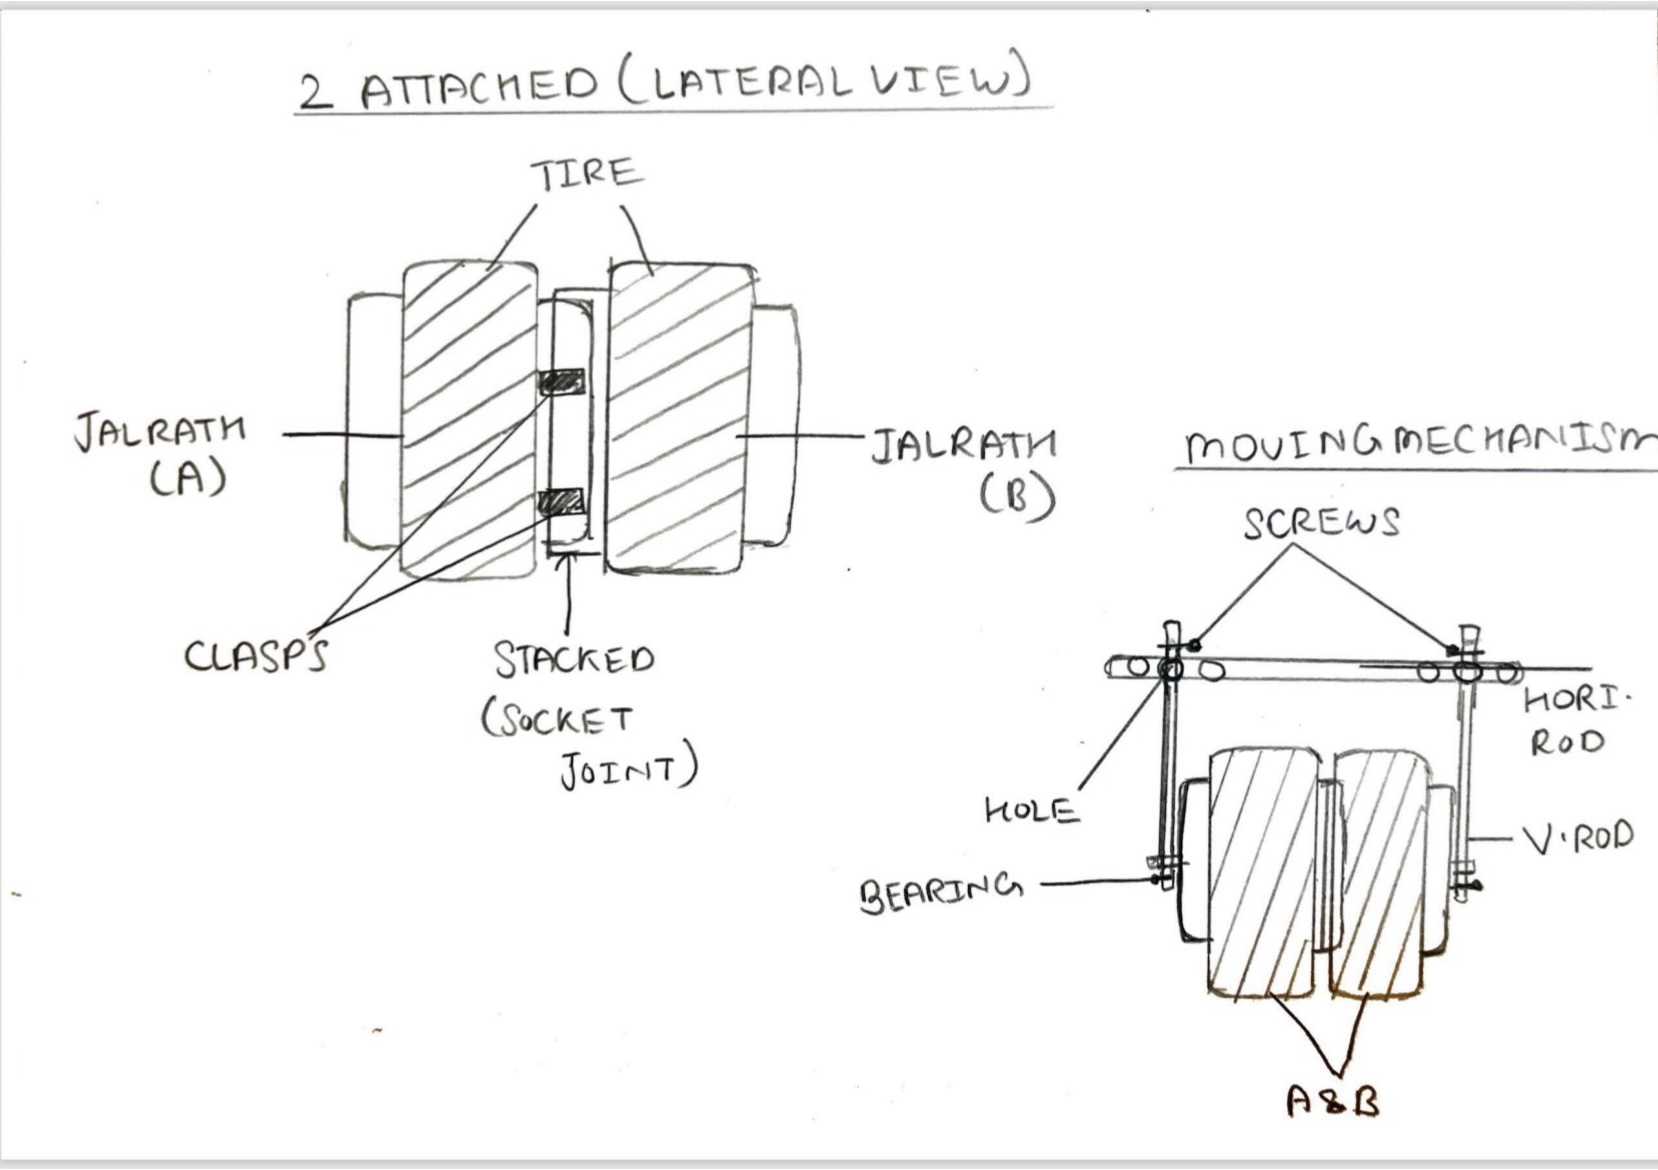 2 ATTACHED (LATERAL VIEW)
TIRE
JALRATH
(A)
JALRATH
(B)
CLASPS
STACKED
(SOCKET
JOINT)
MOVING MECHANISM
SCREWS
HORI.
ROD
HOLE
V.ROD
BEARING
A&B